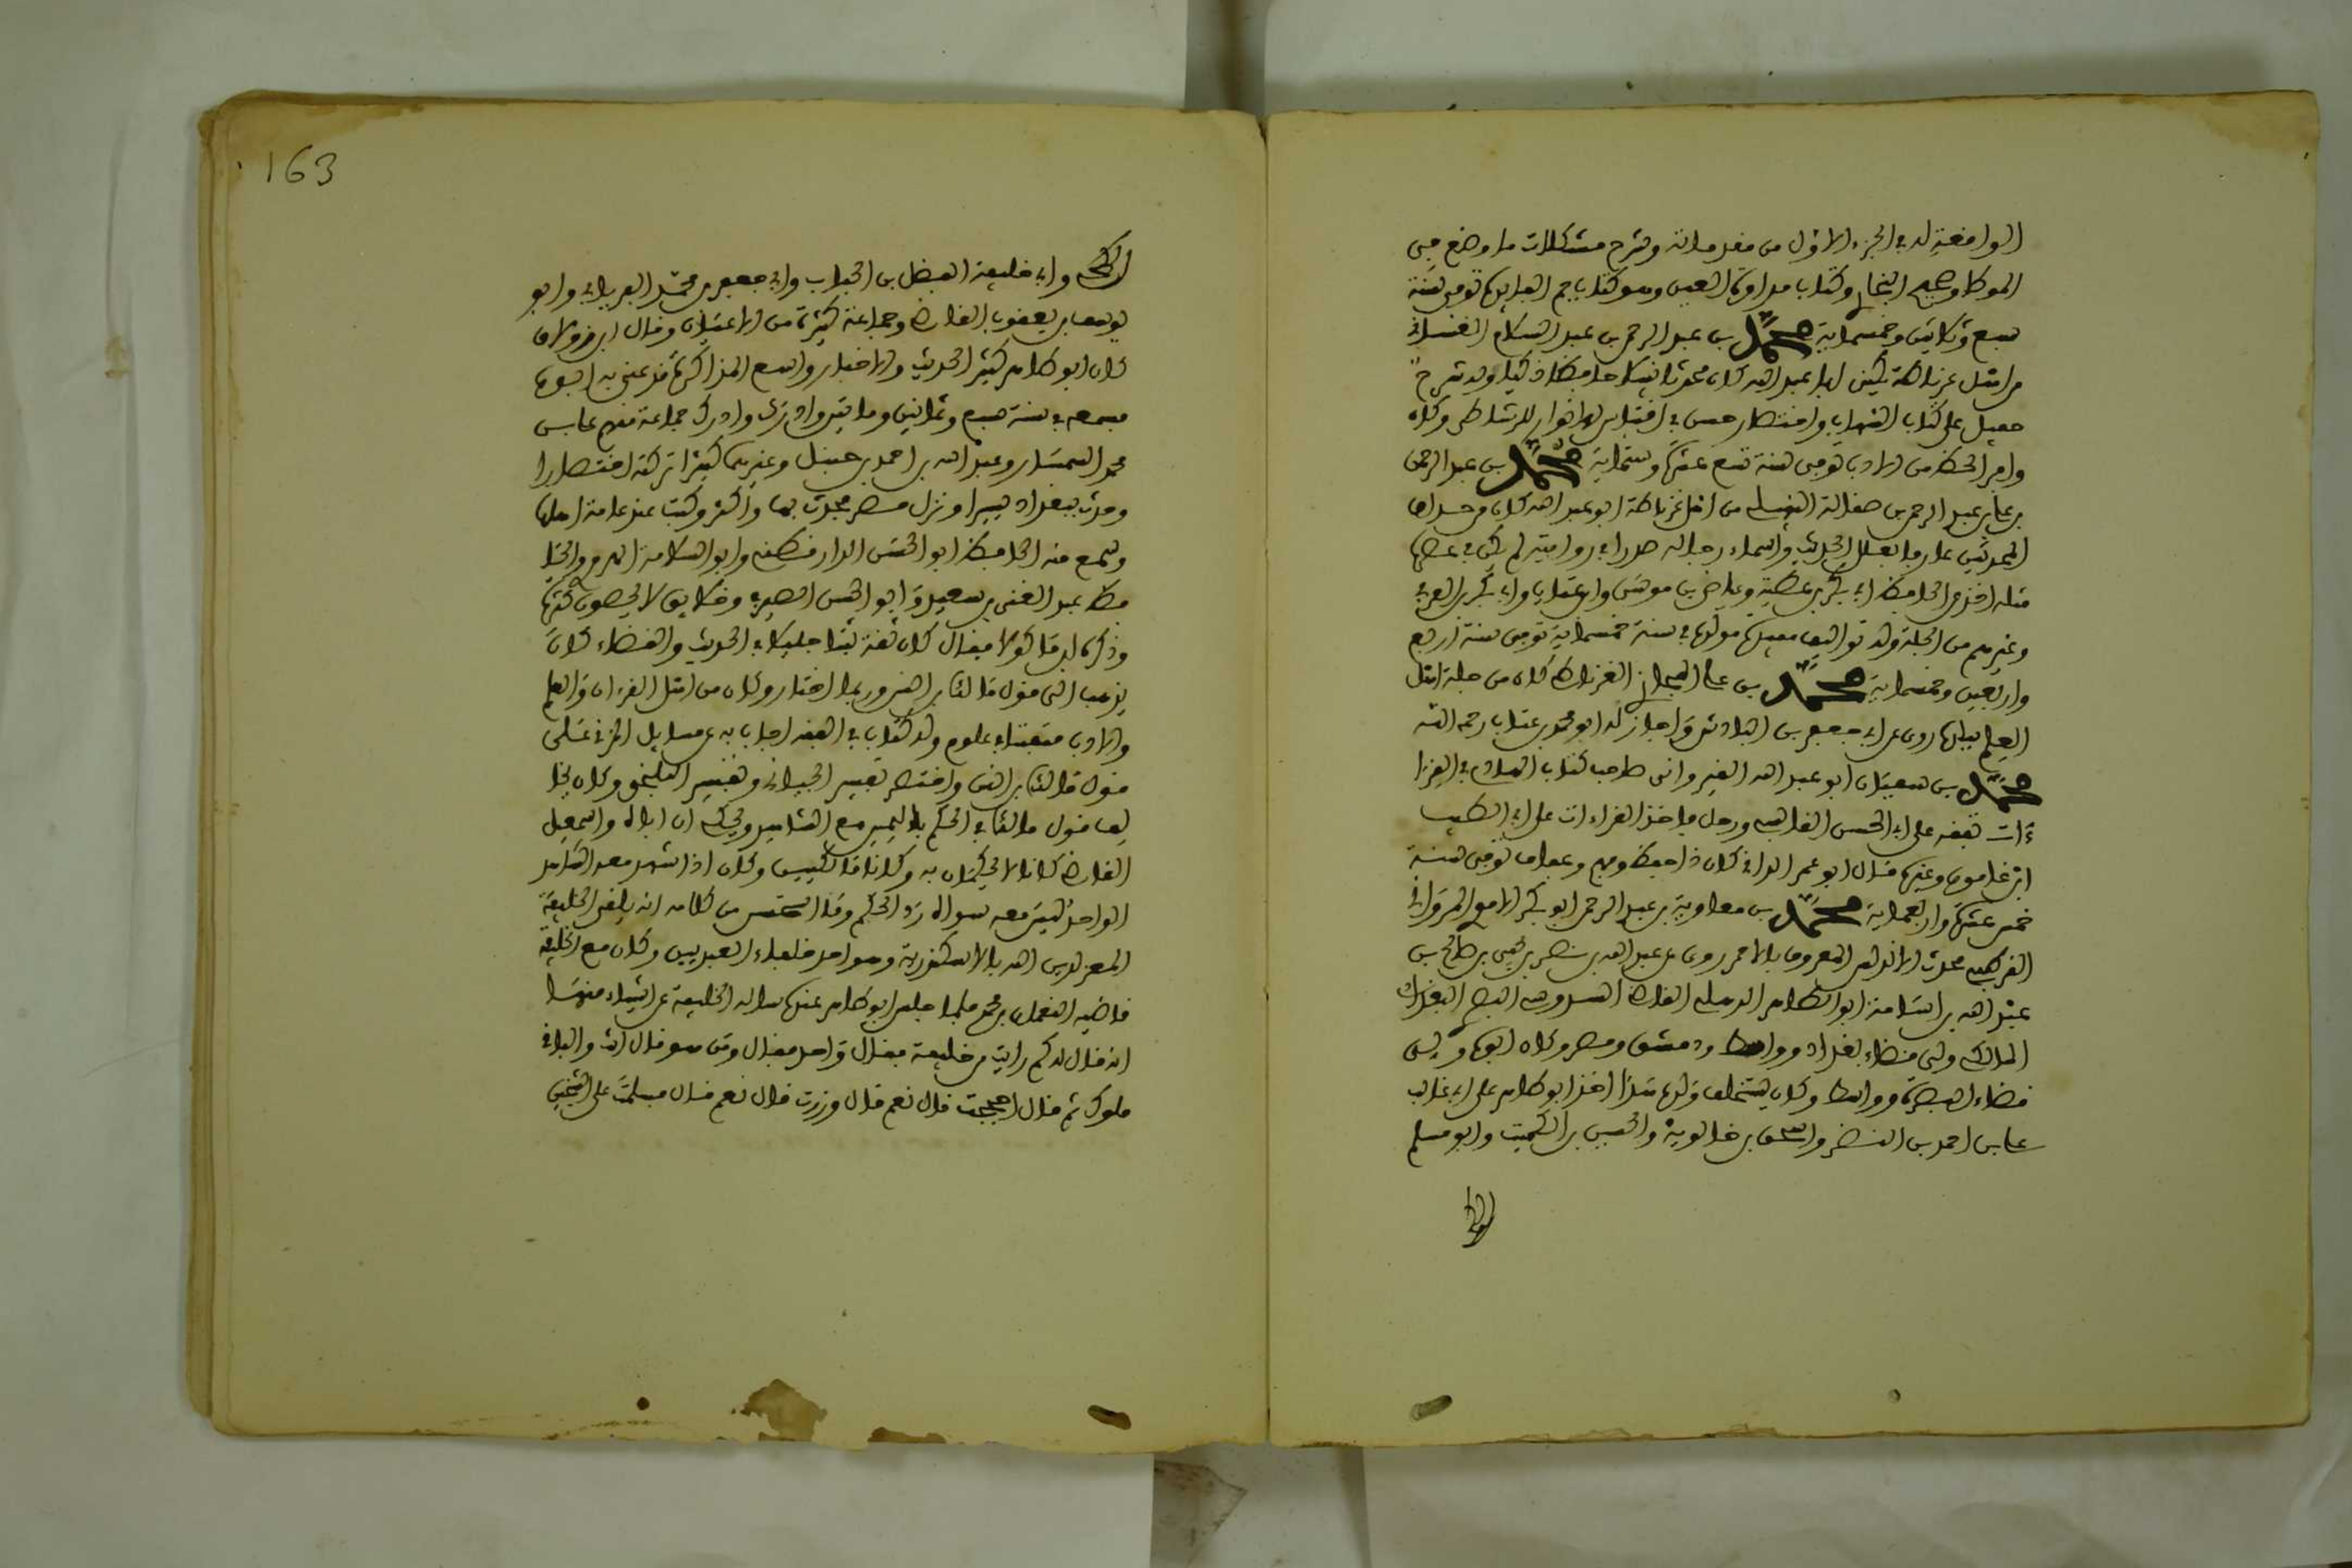 الواقعة له في الجزء الاول من مقدماته وشرح مشكلات ما وضع في
الموطا وصحيح البخاري وكتاب مداواة العين وهو كتاب جم الفايدة توفي سنة
سبع وثلاثين وخمسماية محمد بن عبد الرحمن بن عبد السلام الغساني
من اهل غرناطة يكنى ابا عبد الله كان محدثا نبيلا حافظا ذكيا وله شرح
جميل على كتاب الشهاب واختصار حسن في اقتباس الانوار للرشاطي وكان
وافر الحظ من الادب توفي سنة تسع عشرة وستماية محمد بن عبد الرحمن
بن علي بن عبد الرحمن من اهل غرناطة ابو عبد الله كان من حذاق
المحدثين عارفا بعلل الحديث واسماء رجاله صدرا في روايته لم يكن في عصره
مثله اخذ عن الحافظ ابي بكر بن عطية وعياض بن موسى وابن عتاب وابي بكر بن العربي
وغيرهم من الجلة وله تواليف مفيدة مولده في سنة خمسماية توفي سنة اربع
واربعين وخمسماية محمد بن علي الغرناطي كان من جلة اهل
العلم ببلده روى عن ابي جعفر بن الباذش واجاز له ابو محمد بن عتاب رحمه الله
محمد بن سفيان ابو عبد الله القيرواني صاحب كتاب الهادي في القرا
ءات تفقه على ابي الحسن القابسي ورحل فاخذ القراءات على ابي الطيب
ابن غلبون وغيره قال ابو عمر الداني كان ذا حفظ وفهم وعفاف توفي سنة
خمس عشرة واربعماية محمد بن معاوية بن عبد الرحمن ابو بكر الاموي المرواني
القرطبي محدث الاندلس المعروف بابن الاحمر روى عن عبيد الله بن يحيى
عبد الله بن ابو الطاهر الذهلي القاضي السدوسي البصري البغدادي
المالكي ولي قضاء بغداد وواسط ودمشق ومصر وكان ابوه ولي
قضاء البصرة وواسط وكان يستخلف ولده هذا اخذ ابو طاهر على ابي غالب
علي بن احمد بن النضر واسحاق بن خالويه والحسين بن الكميت وابو مسلم
الكجي
163
الكجي وابي خليفة الفضل بن الحباب وابي جعفر بن محمد الفريابي وابو
يوسف بن يعقوب القاضي وجماعة كثيرة من الاعيان وقال ابن زولاق
كان ابو طاهر كثير الحديث والاخبار واسع المذاكرة قد عني به ابوه
فسمعه في سنة سبع وثمانين ومايتين وادرك جماعة منهم علي بن
محمد السمسار وعبد الله بن احمد بن حنبل وغيرهما كثيرا تركته اختصارا
وحدث ببغداد يسيرا ونزل مصر فحدث بها واكثر وكتب عنه عامة اهلها
وسمع منه الحافظ ابو الحسن الدارقطني وابو اسامة الهروي والحا
فظ عبد الغني بن سعيد وابو الحسن وخلايق لا يحصون كثرة
وذكره ابن ماكولا فقال كان ثقة ثبتا جليلا في الحديث والقضاء كان
يذهب الى قول مالك بن انس وربما اختار وكان من اهل القرءان والعلم
والادب متفننا في علوم وله كتاب في الفقه اجاب به عن مسايل المزني على
قول مالك بن انس واختصر تفسير الجبائي وتفسير البلخي وكان يخا
لف قول مالك في الحكم باليمين مع الشاهد ويحكي ان اباه واسمعيل
القاضي كانا لا يحكمان به وكانا مالكيين وكان اذا شهد معه الشاهد
الواحد ليس معه سواه رد الحكم ومما استحسن من كلامه انه تلقى الخليفة
المعز لدين الله بالاسكندرية وهو احد خلفاء العبيديين وكان مع الخليفة
قاضيه النعمان بن محمد فلما جلس ابو طاهر عنده ساله الخليفة عن اشياء منها
انه قال له كم رايت من خليفة فقال واحد فقال ومن هو قال انت والباقي
ملوك ثم قال احججت قال نعم قال وزرت قال نعم قال فسلمت على الشيخين